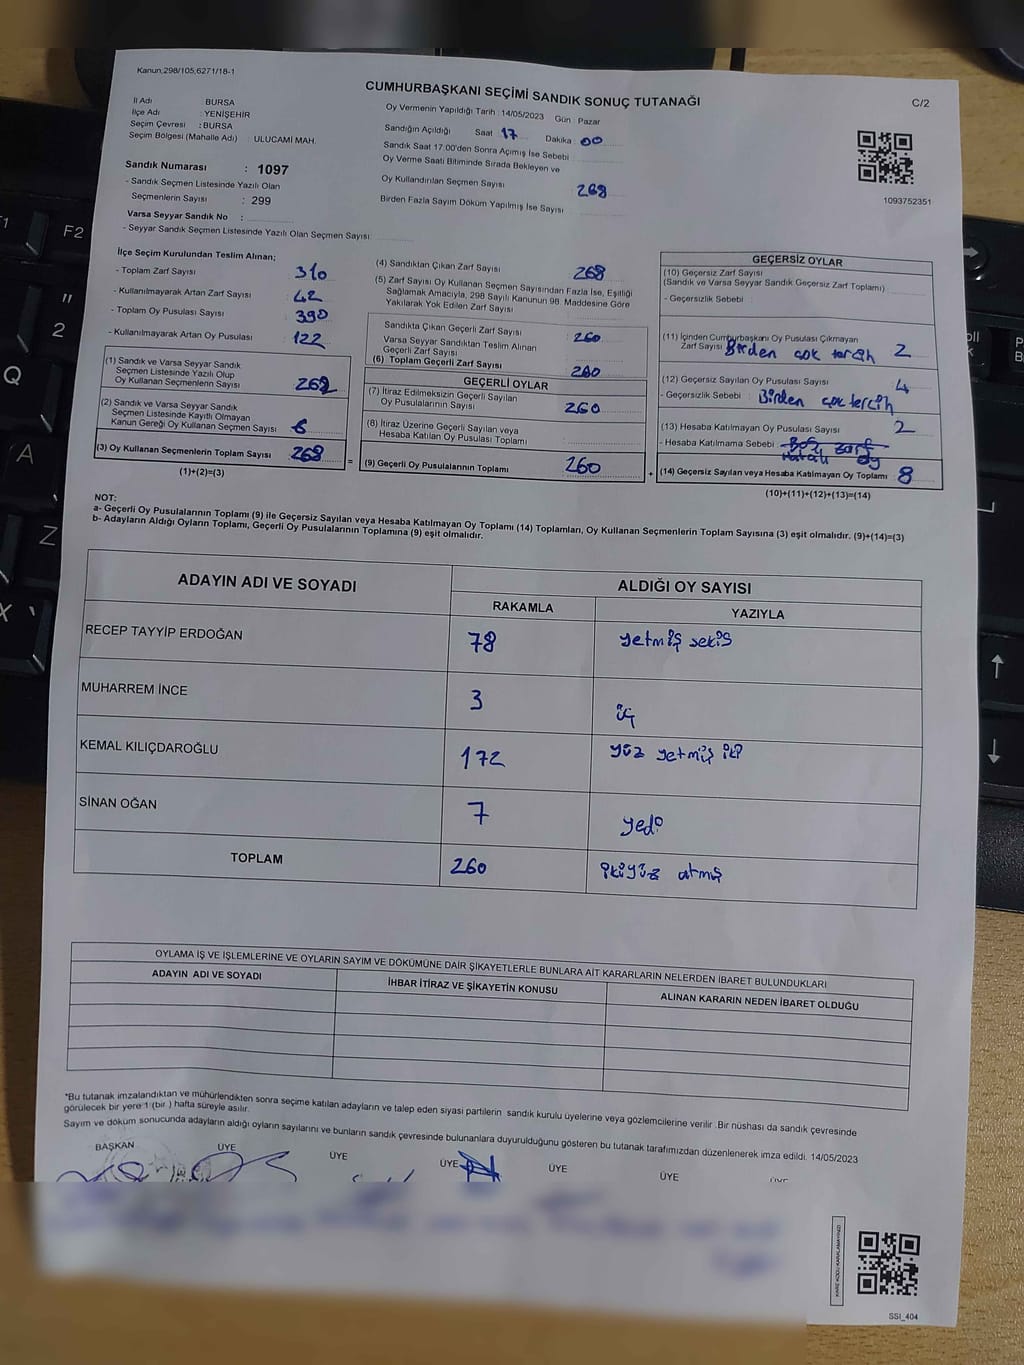 Kanun:298/105,6271/18-1
CUMHURBAŞKANI SEÇİMİ SANDIK SONUÇ TUTANAĞI
C/2
İl Adı BURSA
İlçe Adı : YENİŞEHİR
Seçim Çevresi : BURSA
Seçim Bölgesi (Mahalle Adı) : ULUCAMİ MAH.
Sandık Numarası : 1097
- Sandık Seçmen Listesinde Yazılı Olan
Seçmenlerin Sayısı : 299
Varsa Seyyar Sandık No :
- Seyyar Sandık Seçmen Listesinde Yazılı Olan Seçmen Sayısı:
Oy Vermenin Yapıldığı Tarih : 14/05/2023 Gün : Pazar
Sandığın Açıldığı Saat 17 Dakika 00
Sandık Saat 17.00'den Sonra Açımış İse Sebebi
Oy Verme Saati Bitiminde Sırada Bekleyen ve
Oy Kullandırılan Seçmen Sayısı 268
Birden Fazla Sayım Döküm Yapılmış İse Sayısı
1093752351
İlçe Seçim Kurulundan Teslim Alınan;
- Toplam Zarf Sayısı 310
- Kullanılmayarak Artan Zarf Sayısı 42
- Toplam Oy Pusulası Sayısı 390
- Kullanılmayarak Artan Oy Pusulası 122
(1) Sandık ve Varsa Seyyar Sandık
Seçmen Listesinde Yazılı Olup
Oy Kullanan Seçmenlerin Sayısı 262
(2) Sandık ve Varsa Seyyar Sandık
Seçmen Listesinde Kayıtlı Olmayan
Kanun Gereği Oy Kullanan Seçmen Sayısı 6
(3) Oy Kullanan Seçmenlerin Toplam Sayısı 268 =
(1)+(2)=(3)
(4) Sandıktan Çıkan Zarf Sayısı 268
(5) Zarf Sayısı Oy Kullanan Seçmen Sayısından Fazla İse, Eşitliği
Sağlamak Amacıyla, 298 Sayılı Kanunun 98. Maddesine Göre
Yakılarak Yok Edilen Zarf Sayısı
Sandıkta Çıkan Geçerli Zarf Sayısı 260
Varsa Seyyar Sandıktan Teslim Alınan
Geçerli Zarf Sayısı
(6) Toplam Geçerli Zarf Sayısı 260
GEÇERLİ OYLAR
(7) İtiraz Edilmeksizin Geçerli Sayılan
Oy Pusulalarının Sayısı 260
(8) İtiraz Üzerine Geçerli Sayılan veya
Hesaba Katılan Oy Pusulası Toplamı
(9) Geçerli Oy Pusulalarının Toplamı 260 +
GEÇERSİZ OYLAR
(10) Geçersiz Zarf Sayısı
(Sandık ve Varsa Seyyar Sandık Geçersiz Zarf Toplamı)
- Geçersizlik Sebebi :
(11) İçinden Cumhurbaşkanı Oy Pusulası Çıkmayan
Zarf Sayısı Birden çok tercih 2
(12) Geçersiz Sayılan Oy Pusulası Sayısı 4
- Geçersizlik Sebebi : Birden çok tercih
(13) Hesaba Katılmayan Oy Pusulası Sayısı 2
- Hesaba Katılmama Sebebi Boş zarf
Hatalı oy
(14) Geçersiz Sayılan veya Hesaba Katılmayan Oy Toplamı 8
(10)+(11)+(12)+(13)=(14)
NOT:
a- Geçerli Oy Pusulalarının Toplamı (9) ile Geçersiz Sayılan veya Hesaba Katılmayan Oy Toplamı (14) Toplamları, Oy Kullanan Seçmenlerin Toplam Sayısına (3) eşit olmalıdır. (9)+(14)=(3)
b- Adayların Aldığı Oyların Toplamı, Geçerli Oy Pusulalarının Toplamına (9) eşit olmalıdır.
ADAYIN ADI VE SOYADI ALDIĞI OY SAYISI
RAKAMLA YAZIYLA
RECEP TAYYİP ERDOĞAN 78 yetmiş sekis
MUHARREM İNCE 3 üç
KEMAL KILIÇDAROĞLU 172 yüz yetmiş iki
SİNAN OĞAN 7 yedi
TOPLAM 260 ikiyüz atmış
OYLAMA İŞ VE İŞLEMLERİNE VE OYLARIN SAYIM VE DÖKÜMÜNE DAİR ŞİKAYETLERLE BUNLARA AİT KARARLARIN NELERDEN İBARET BULUNDUKLARI
ADAYIN ADI VE SOYADI İHBAR İTİRAZ VE ŞİKAYETİN KONUSU ALINAN KARARIN NEDEN İBARET OLDUĞU
*Bu tutanak imzalandıktan ve mühürlendikten sonra seçime katılan adayların ve talep eden siyasi partilerin sandık kurulu üyelerine veya gözlemcilerine verilir .Bir nüshası da sandık çevresinde
görülecek bir yere 1 (bir ) hafta süreyle asılır.
Sayım ve döküm sonucunda adayların aldığı oyların sayılarını ve bunların sandık çevresinde bulunanlara duyurulduğunu gösteren bu tutanak tarafımızdan düzenlenerek imza edildi. 14/05/2023
BAŞKAN ÜYE ÜYE ÜYE ÜYE ÜYE ÜYE
SSI_404